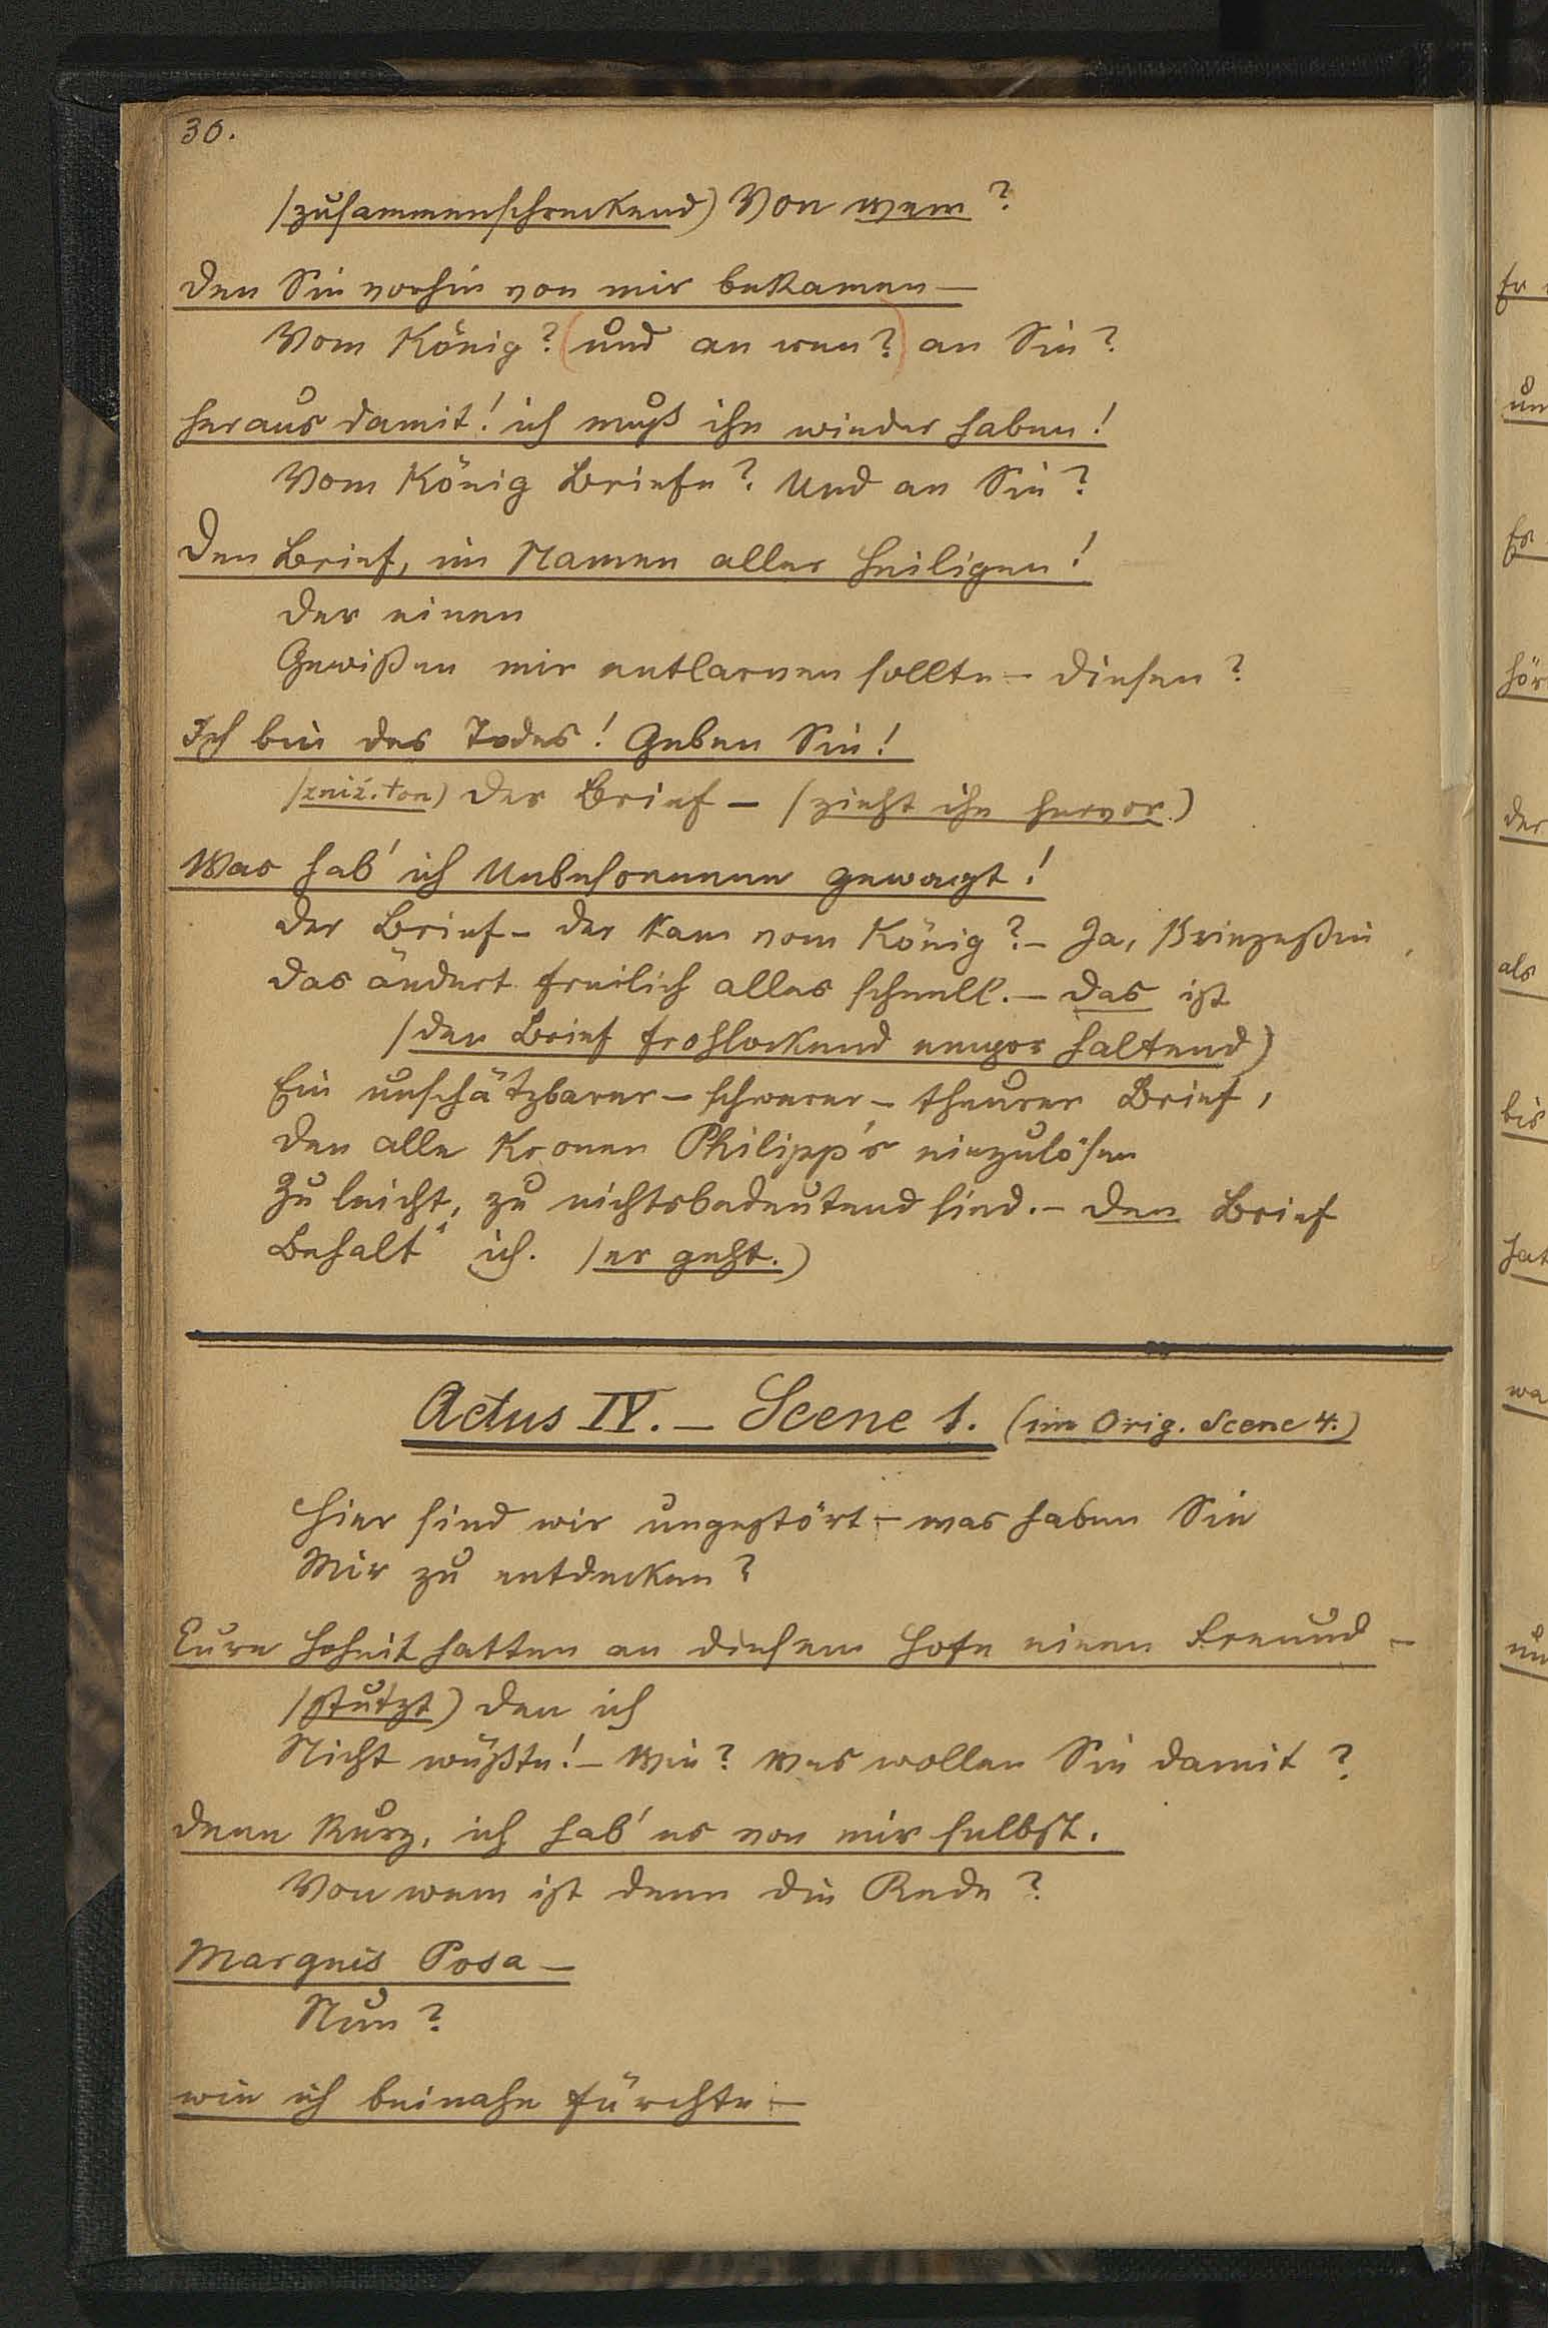 30.
/zusammenschreckend) Von wem?
den Sie vorhin von mir bekamen —
Vom König? (und an wen?) an Sie?
heraus damit! ich muß ihn wieder haben!
Vom König Briefe? Und an Sie?
Den Brief, im Namen aller Heiligen!
Der einen
Gewißen mir entlarven sollte – diesen?
Ich bin des Todes! Geben Sie!
/zniż. ton) Der Brief – /zieht ihn hervor.)
Was hab' ich Unbesonnene gewagt!
der Brief – der kam vom König? – Ja, Prinzeßin
das ändert freilich alles schnell. – das ist
/den Brief frohlockend empor haltend)
Ein unschätzbarer – schwerer – theurer Brief,
den alle Kronen Philipp's einzulösen
Zu leicht, zu nichtsbedeutend sind. – den Brief
Behalt' ich. /er geht.)
Actus IV. – Scene 1. (im Orig. Scene 4.)
Hier sind wir ungestört – was haben Sie
Mir zu entdecken?
Eure Hoheit hatten an diesem Hofe einen Freund –
/stutzt) den ich
Nicht wüßte! – Wie? Was wollen Sie damit?
denn kurz, ich hab' es von mir selbst.
Von wem ist denn die Rede?
Marquis Posa –
Nun?
wie ich beinahe fürchte –